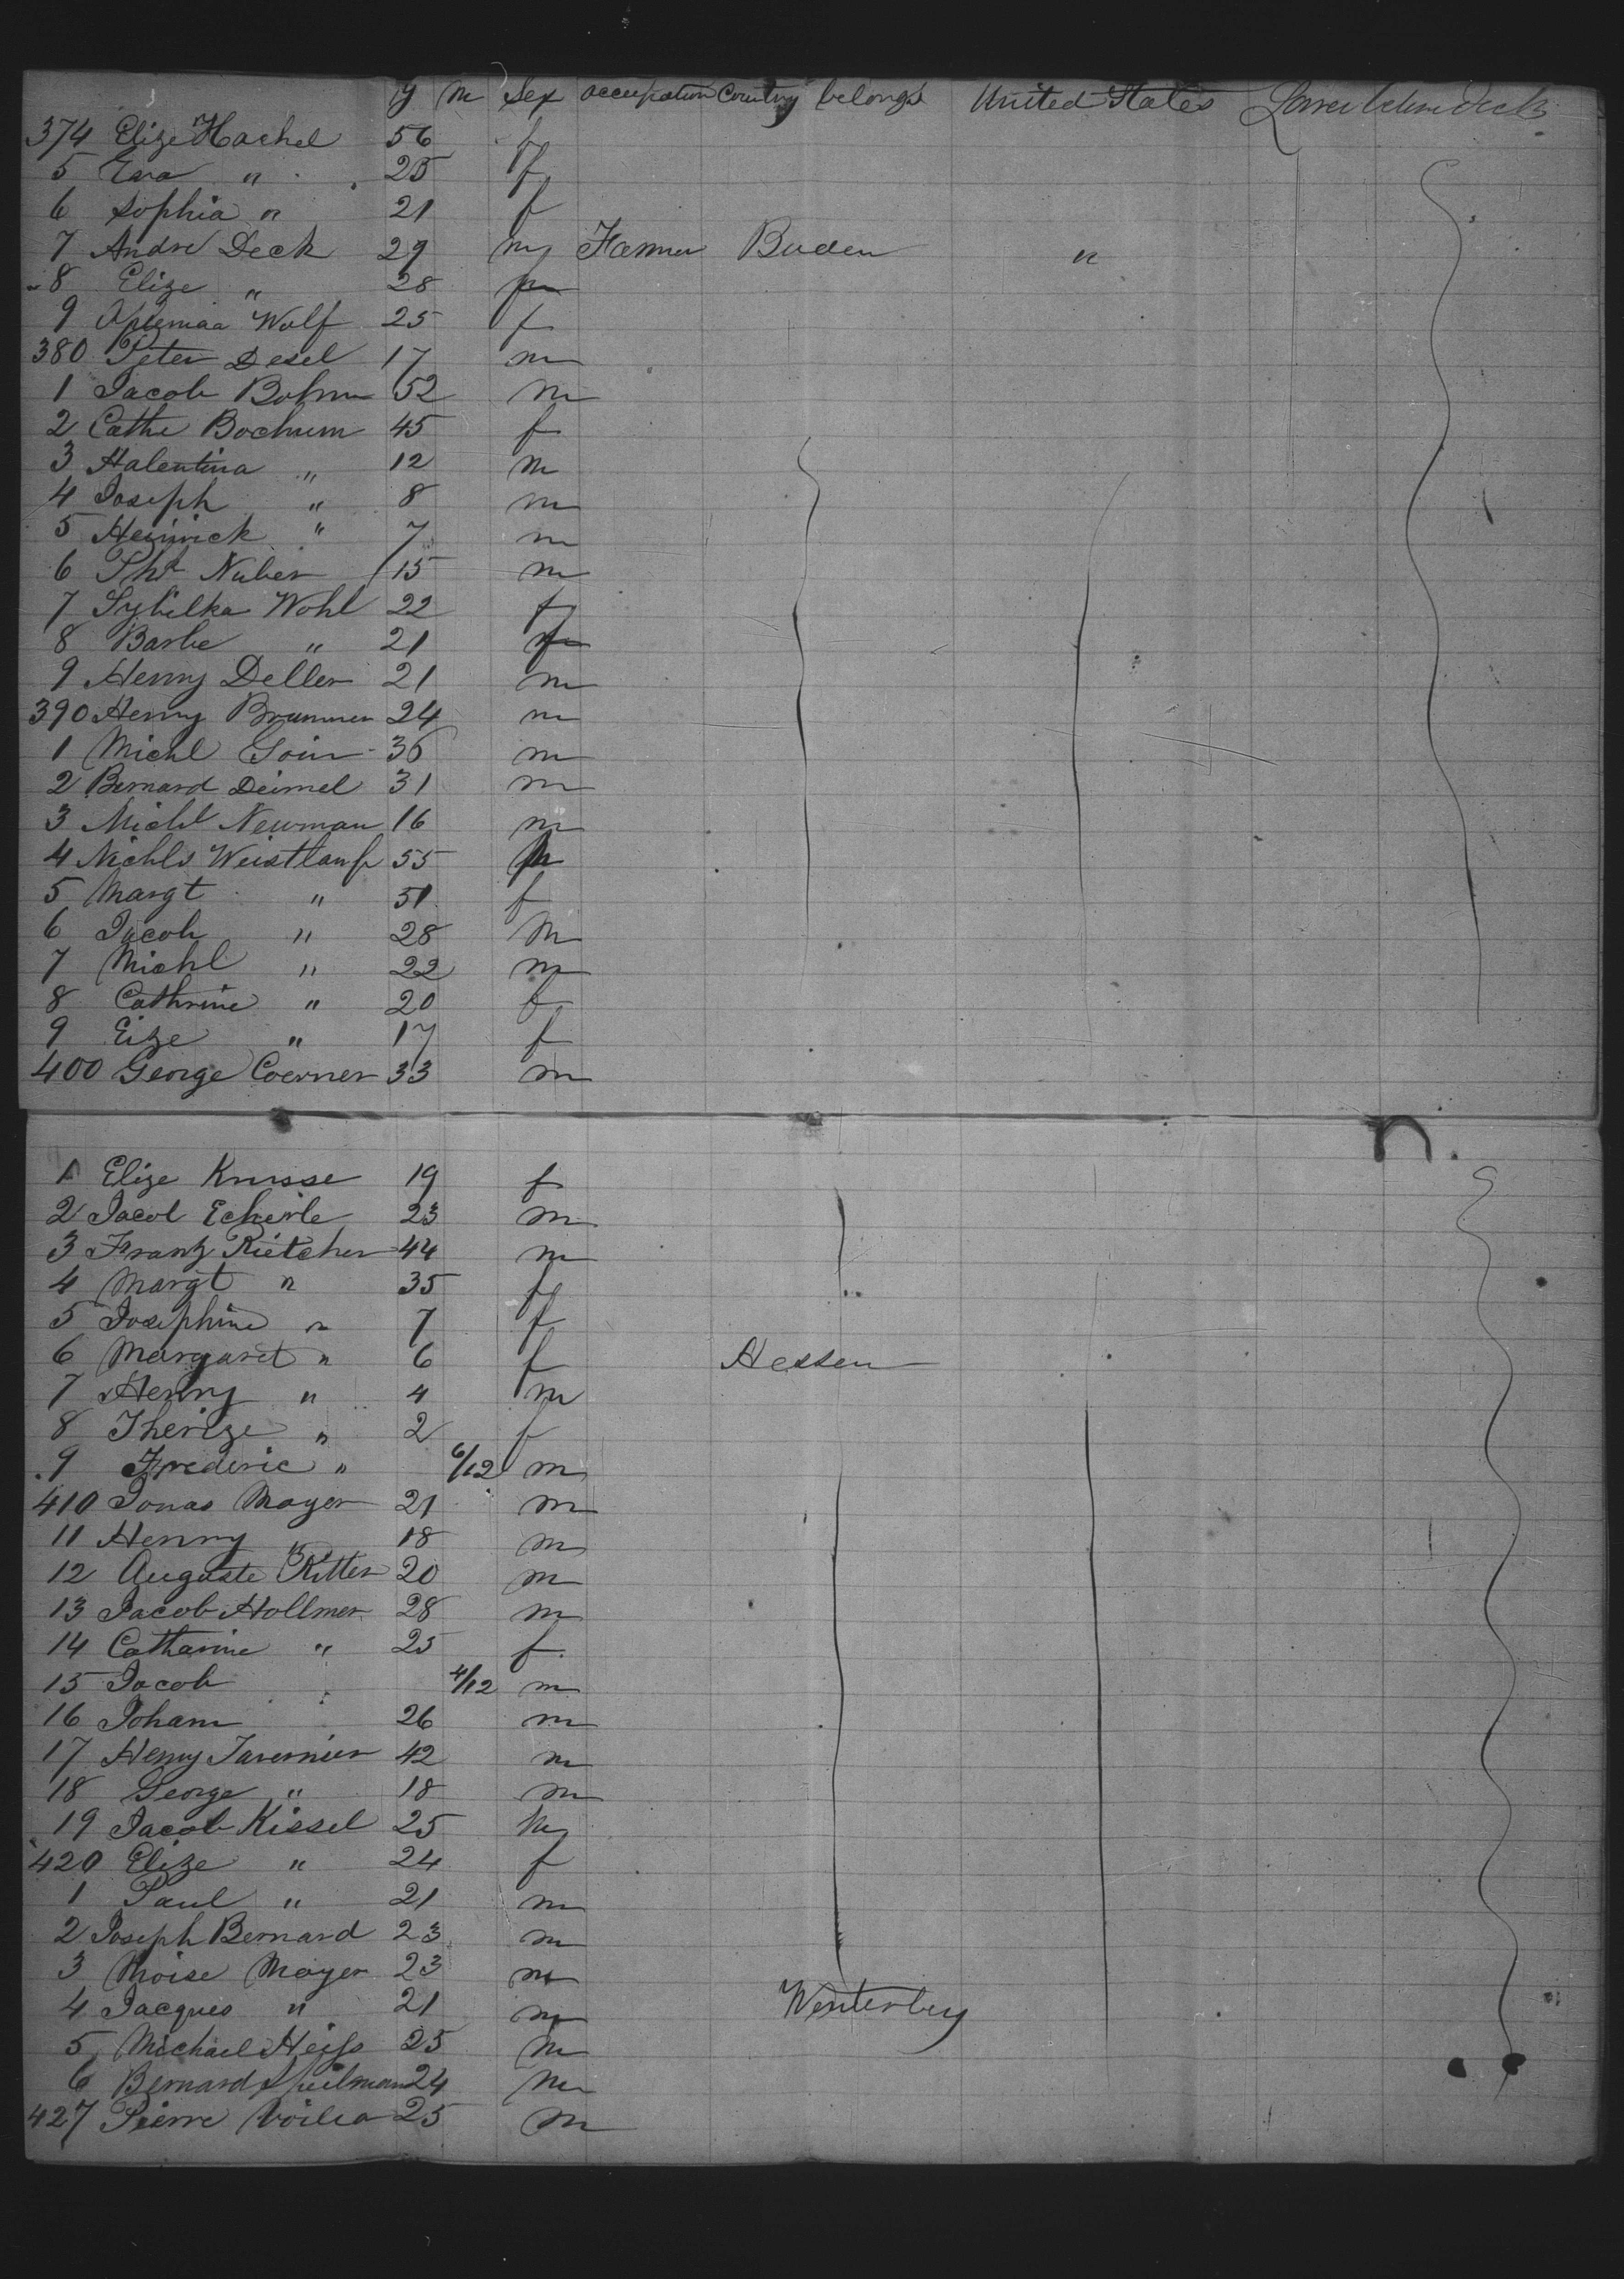 y m Sex occupation Country belongs United States Lower between decks
374 Elize Hachel 56 f
5 Eava " 25 f
6 Sophia " 21 f
7 Andre Deck 29 m Farmer Baden "
8 Elize " 28 f
9 Wolf 25 f
380 Peter Desel 17 m
1 Jacob Bohm 52 m
2 Cathe Bochum 45 f
3 Halentina " 12 m
4 Joseph " 8 m
5 Heinrick " 7 m
6 Pht Nuber 15 m
7 Sybilka Wohl 22 f
8 Barbe " 21 f
9 Henry Deller 21 m
390 Henry Brummer 24 m
1 Michl Goin 36 m
2 Bernard Deimel 31 m
3 Michl Newman 16 m
4 Nichls Weistlauf 55 m
5 Margt " 51 f
6 Jacob " 28 m
7 Michl " 22 m
8 Cathrine " 20 f
9 Eize " 17 f
400 George Coerner 33 m
1 Elize Krusse 19 f
2 Jacob Eckerle 23 m
3 Frantz Rietcher 44 m
4 Margt " 35 f
5 Josephine " 7 f
6 Margaret " 6 f Hessen
7 Henry " 4 m
8 Therize " 2 f
9 Frederic " 6/12 m
410 Jonas Mayer 21 m
11 Henry " 18 m
12 Auguste Ritter 20 m
13 Jacob Hollmer 28 m
14 Catharine " 25 f
15 Jacob 4/12 m
16 Joham 26 m
17 Henry Tavernier 42 m
18 George " 18 m
19 Jacob Kissel 25 m
420 Elize " 24 f
1 Paul " 21 m
2 Joseph Bernard 23 m
3 Moise Mayer 23 m
4 Jacques " 21 m Wenterberg
5 Michael Heiss 25 m
6 Bernard Speilman 24 m
427 Pierre Voilea 25 m